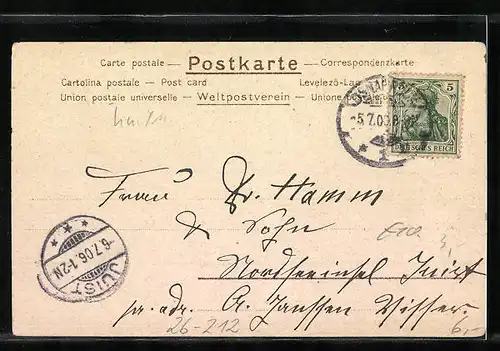 Carte postale — Postkarte — Correspondenzkarte
Cartolina postale — Post card Levelező-Lap
Union postale universelle — Weltpostverein — Unione
5
DEUTSCHES REICH
1
Frau Dr. Hamm
& Sohn
Nordseeinsel Juist
pr. adr. A. Janssen Visser.
JUIST
6.7.06. 1-2N
26-212
6,-